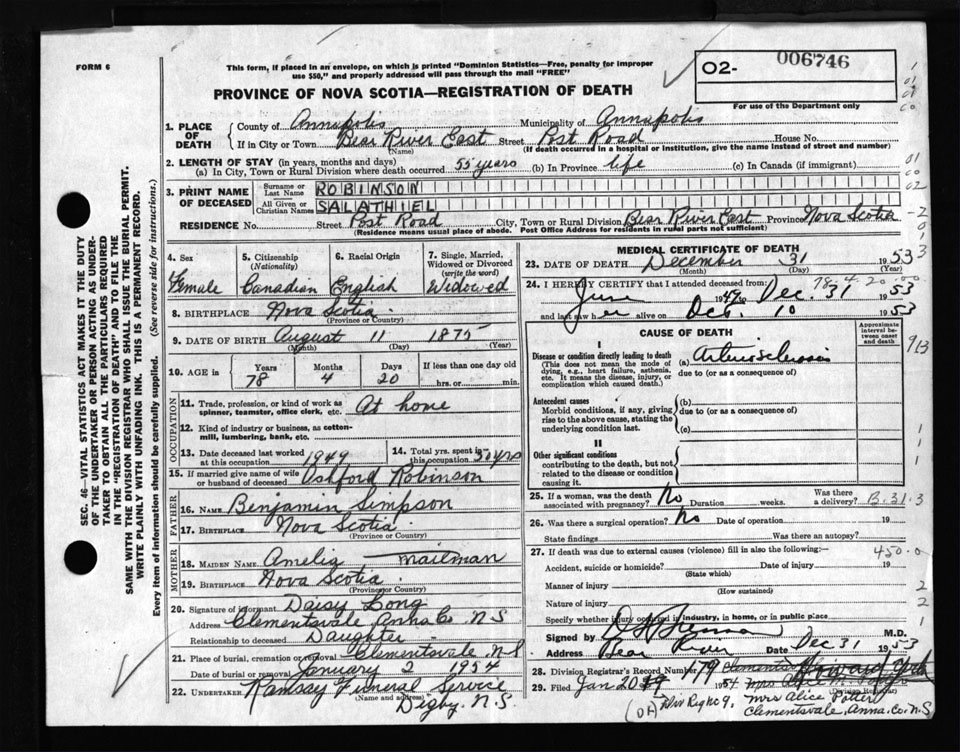 FORM 6
This form, if placed in an envelope, on which is printed "Dominion Statistics—Free, penalty for improper
use $50," and properly addressed will pass through the mail "FREE"
02- 006746
PROVINCE OF NOVA SCOTIA—REGISTRATION OF DEATH
For use of the Department only
1. PLACE OF DEATH
County of Annapolis Municipality of Annapolis
If in City or Town Bear River East Street Post Road House No.
(Name) (If death occurred in a hospital or institution, give the name instead of street and number)
2. LENGTH OF STAY (in years, months and days)
(a) In City, Town or Rural Division where death occurred 55 years (b) In Province life (c) In Canada (if immigrant)
3. PRINT NAME OF DECEASED
Surname or Last Name ROBINSON
All Given or Christian Names SALATHIEL
RESIDENCE No. Street Post Road City, Town or Rural Division Bear River East Province Nova Scotia
(Residence means usual place of abode. Post Office Address for residents in rural parts not sufficient)
4. Sex
Female
5. Citizenship
(Nationality)
Canadian
6. Racial Origin
English
7. Single, Married,
Widowed or Divorced
(write the word)
Widowed
8. BIRTHPLACE Nova Scotia
(Province or Country)
9. DATE OF BIRTH August 11 1875
(Month) (Day) (Year)
10. AGE in
Years Months Days If less than one day old
78 4 20 hrs. or min.
OCCUPATION
11. Trade, profession, or kind of work as
spinner, teamster, office clerk, etc. At home
12. Kind of industry or business, as cotton-
mill, lumbering, bank, etc.
13. Date deceased last worked
at this occupation 1949
14. Total yrs. spent in
this occupation yrs
15. If married give name of wife
or husband of deceased Ashford Robinson
FATHER
16. NAME Benjamin Simpson
17. BIRTHPLACE Nova Scotia
(Province or Country)
MOTHER
18. MAIDEN NAME Amelia Mailman
19. BIRTHPLACE Nova Scotia
(Province or Country)
20. Signature of informant Daisy Long
Address Clementsvale Anna Co. N.S
Relationship to deceased Daughter
21. Place of burial, cremation or removal Clementsvale N.S
Date of burial or removal January 2 1954
22. UNDERTAKER Ramsay Funeral Service
(Name and address)
Digby. N.S.
MEDICAL CERTIFICATE OF DEATH
23. DATE OF DEATH December 31 1953
(Month) (Day) (Year)
78-4-20
24. I HEREBY CERTIFY that I attended deceased from:
June 1949 to Dec. 31 1953
and last saw her alive on Dec. 10 1953
CAUSE OF DEATH
Approximate
interval be-
tween onset
and death
I
Disease or condition directly leading to death (a) Arteriosclerosis
(This does not mean the mode of
dying, e.g., heart failure, asthenia,
etc. It means the disease, injury, or
complication which caused death.)
due to (or as a consequence of)
Antecedent causes
Morbid conditions, if any, giving
rise to the above cause, stating the
underlying condition last.
(b)
due to (or as a consequence of)
(c)
II
Other significant conditions
contributing to the death, but not
related to the disease or condition
causing it.
25. If a woman, was the death
associated with pregnancy? No Duration weeks. Was there
a delivery? B.31.3
26. Was there a surgical operation? No Date of operation 19
State findings Was there an autopsy?
27. If death was due to external causes (violence) fill in also the following:— 450.0
Accident, suicide or homicide? Date of injury 19
(State which)
Manner of injury
(How sustained)
Nature of injury
Specify whether injury occurred in industry, in home, or in public place
Signed by M.D.
Address Bear River Date Dec 31 1953
28. Division Registrar's Record Number 79
29. Filed Jan 20 1954
(Division Registrar)
Div Reg no 9. Mrs Alice Potter
Clementsvale, Anna. Co. N.S
SEC. 46—VITAL STATISTICS ACT MAKES IT THE DUTY
OF THE UNDERTAKER OR PERSON ACTING AS UNDER-
TAKER TO OBTAIN ALL THE PARTICULARS REQUIRED
IN THE "REGISTRATION OF DEATH" AND TO FILE THE
SAME WITH THE DIVISION REGISTRAR WHO SHALL ISSUE THE BURIAL PERMIT.
WRITE PLAINLY WITH UNFADING INK. THIS IS A PERMANENT RECORD.
Every item of information should be carefully supplied. (See reverse side for instructions.)